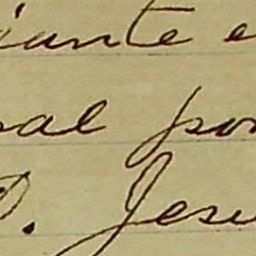 iante e
al por
D. Jesu